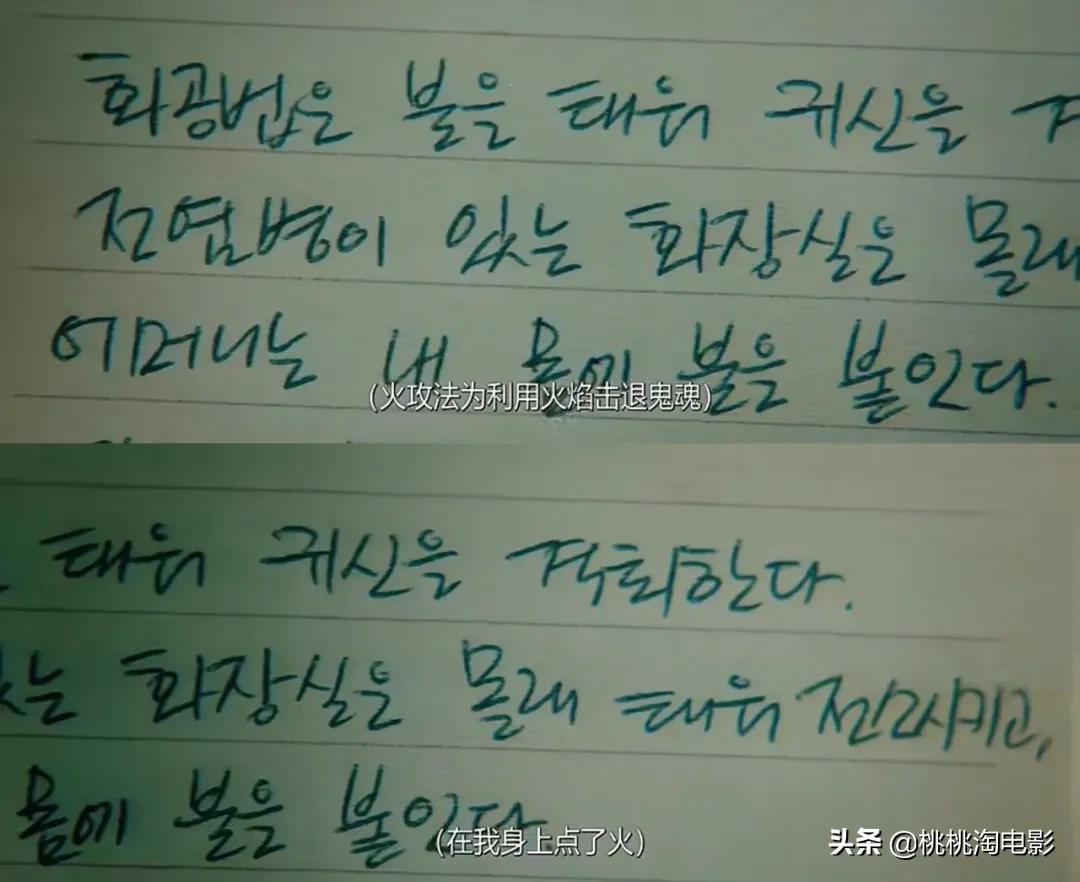 화공법은 불을 태워 귀신을
전염병이 있는 화장실은 몰래
어머니는 내 몸에 불을 붙인다.
(火攻法为利用火焰击退鬼魂)
태워 귀신을 격퇴한다.
는 화장실은 몰래 태워 전소시키고,
몸에 불을 붙인다
(在我身上点了火)
头条 @桃桃淘电影